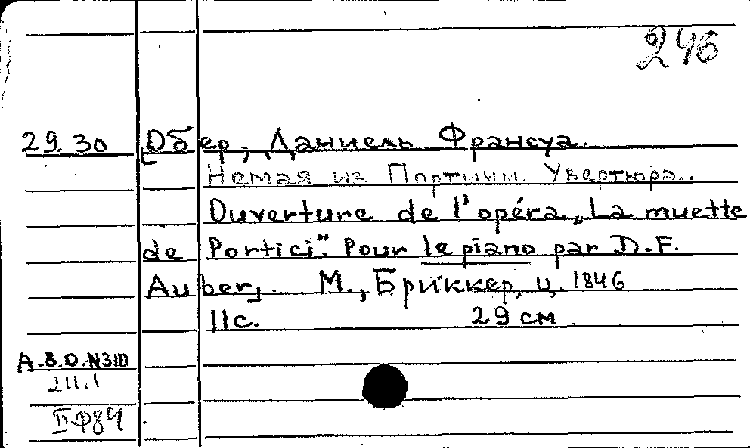 246
29.30 [Обер, Даниель Франсуа.
Немая из Портичи. Увертюра.
Ouverture de l'opéra „La muette
de Portici". Pour le piano par D.F.
Auber, . М., Бриккер, ц. 1846
11с. 29 см
А.В.О. №310
211.1